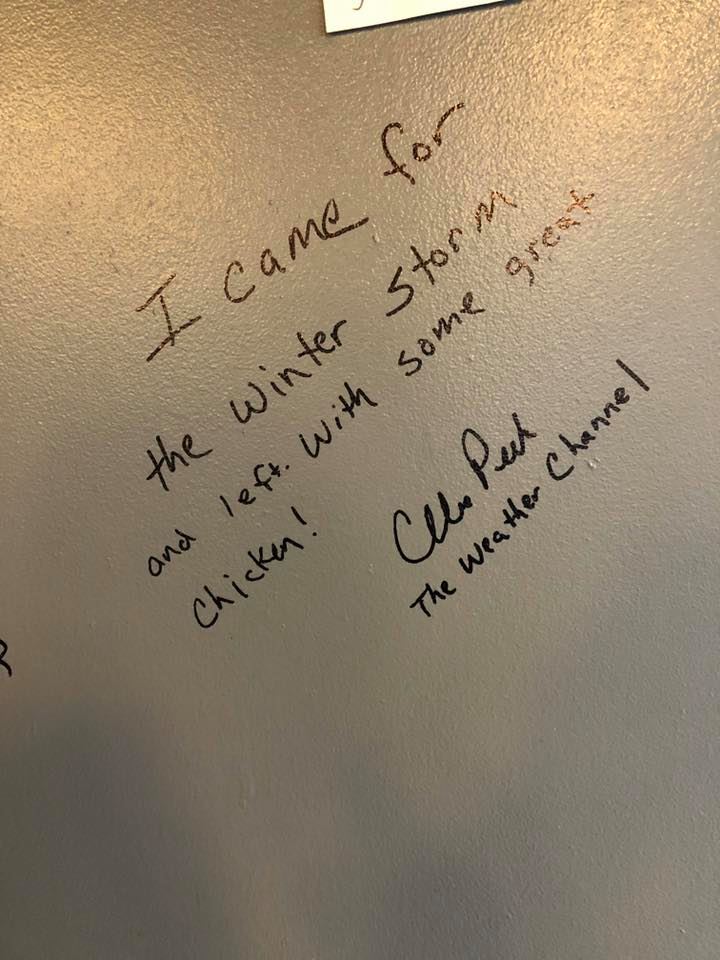 I came for
the Winter Storm
and left with some great
Chicken!
The Weather Channel